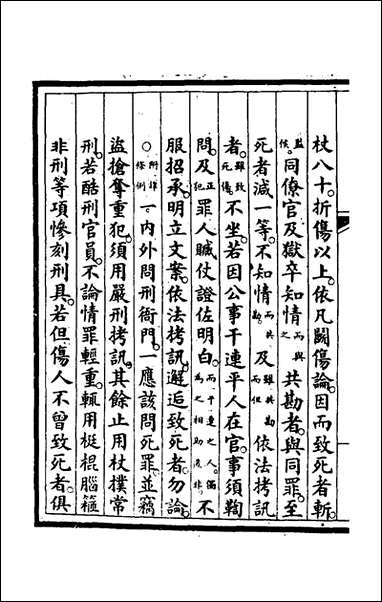 杖八十。折傷以上。依凡鬪傷論。因而致死者。斬。
監候。同僚官及獄卒知情而與之共勘者。與同罪。至
死者減一等。不知情而共勘。及雖共勘而但依法拷訊
者。雖致死傷。不坐。若因公事干連平人在官。事須鞫
問。及正犯罪人贓仗證佐明白。而干連之人。獨為之相助匿非。不
服招承。明立文案。依法拷訊。邂逅致死者。勿論。
○附律條例一。內外問刑衙門。一應該問死罪。並竊
盜搶奪重犯。須用嚴刑拷訊。其餘止用杖撲常
刑。若酷刑官員。不論情罪輕重。輒用梃棍腦箍
非刑等項慘刻刑具。若但傷人不曾致死者。俱